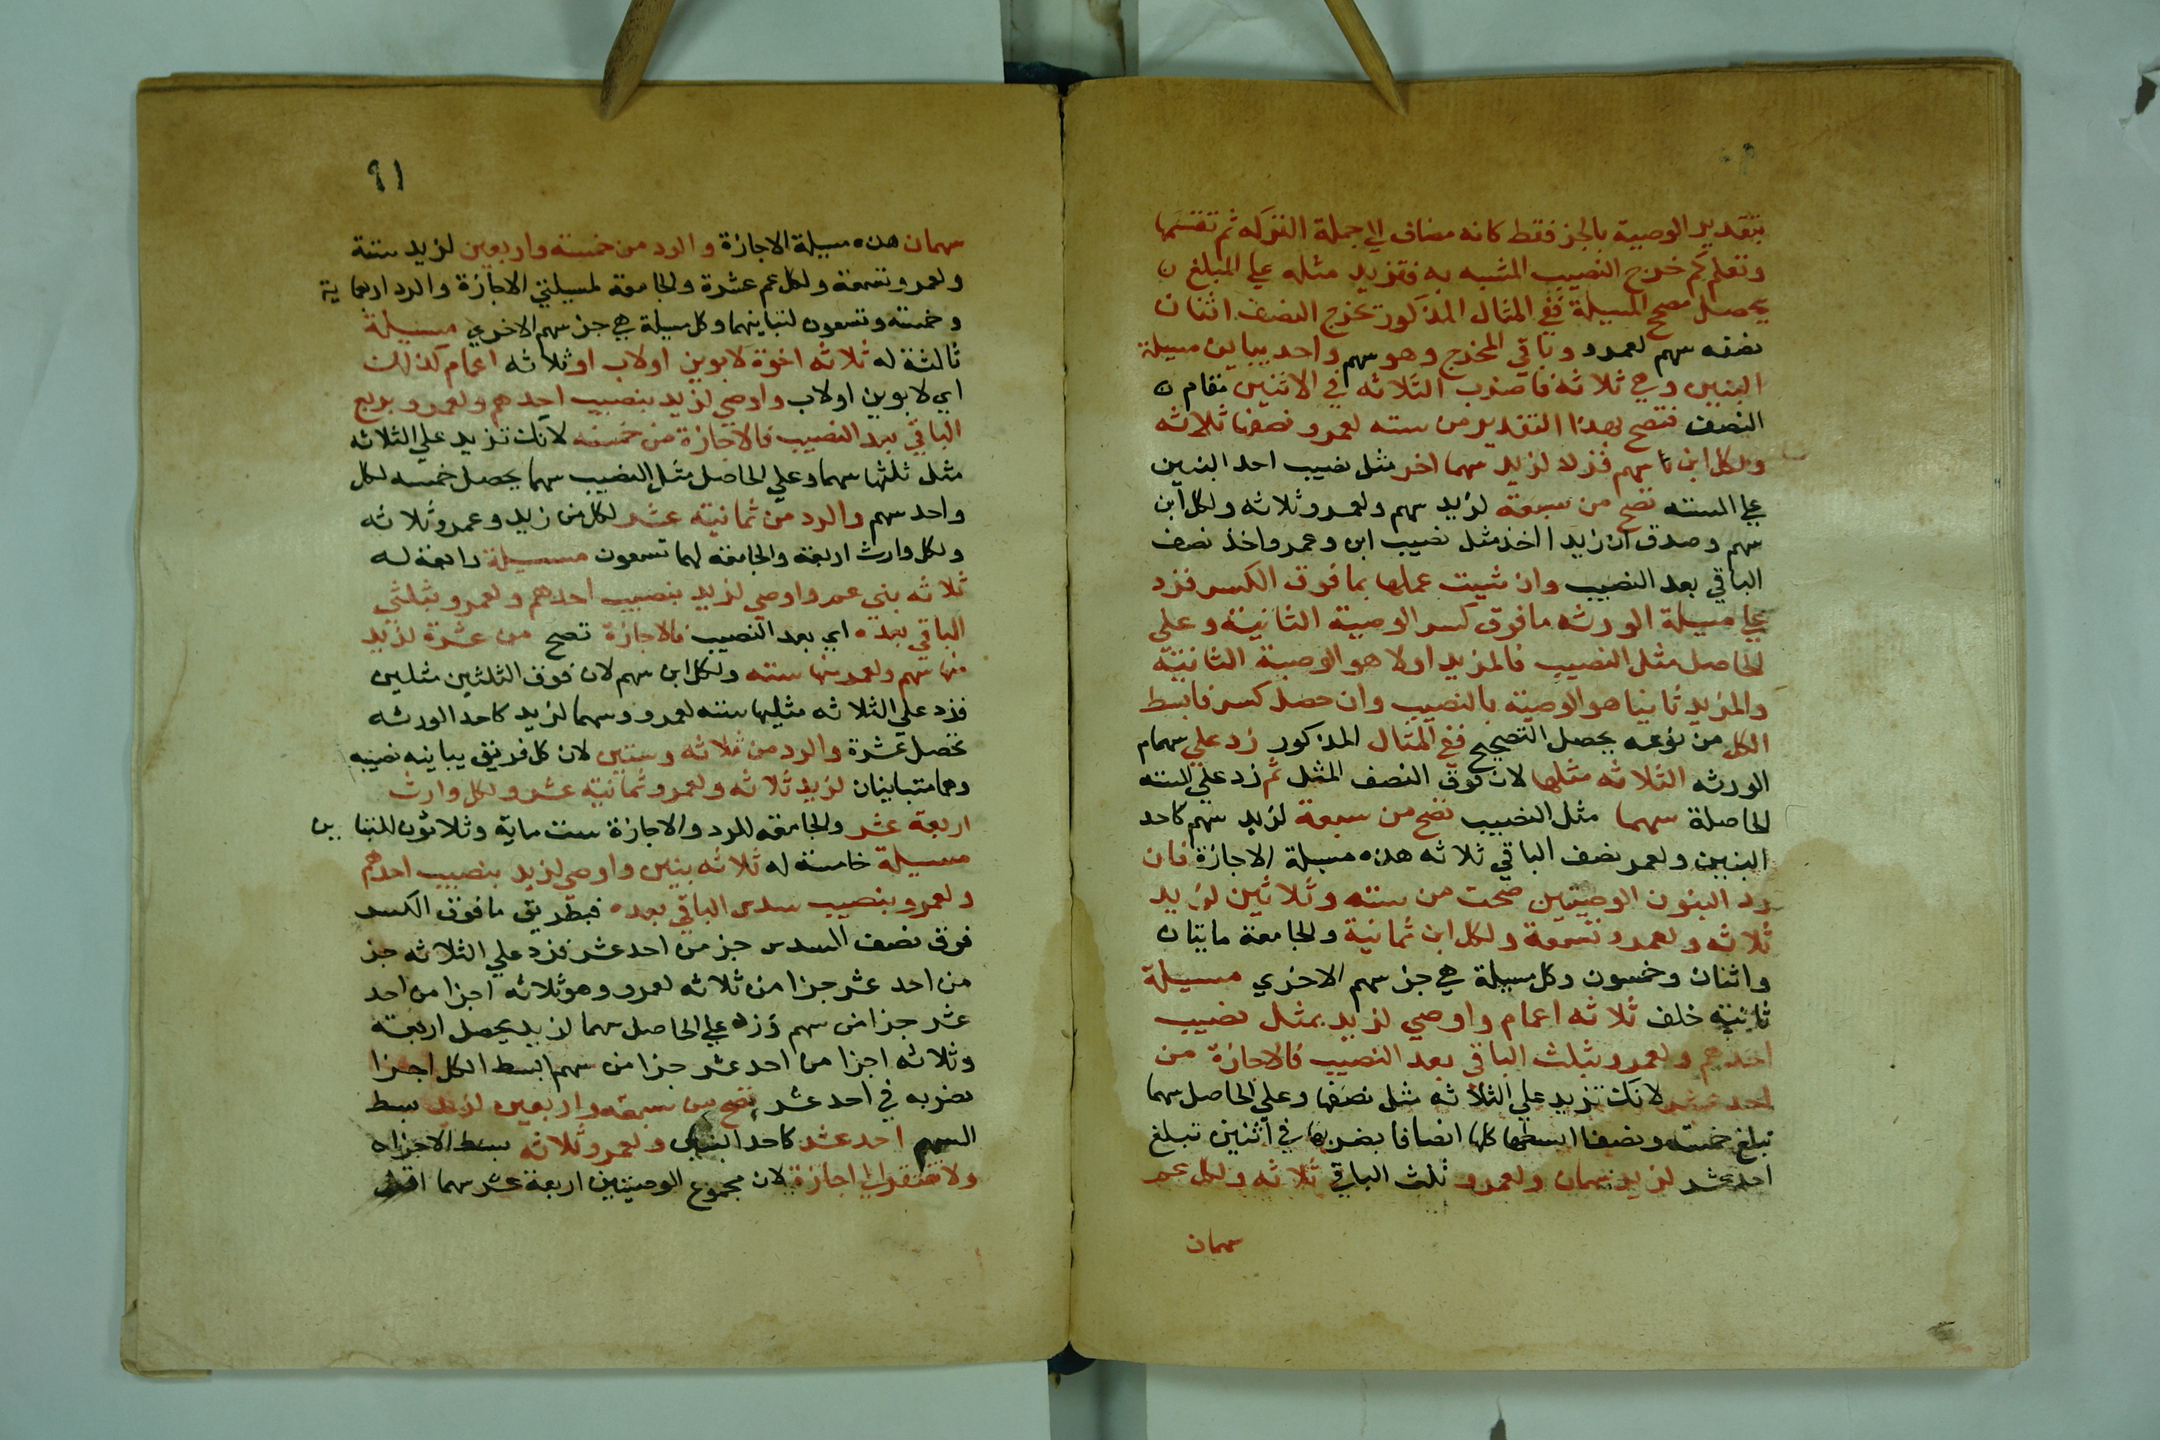 بتقدير الوصية بالجز فقط كانه مضاف الي جملة التركه ثم تقسمها
وتعلم كم خرج النصيب المشبه به فتزيد مثله علي المبلغ ن
يحصل مصحح المسيلة ففي المثال المذكور مخرج النصف اثنان
نصفه سهم لعمرو وباقي المخرج وهو سهم واحد يباين مسيلة
البنين وهي ثلاثة فاضرب الثلاثه في الاثنين مقام ن
النصف فتصح بهذا التقدير من سته لعمرو نصفها ثلاثه
ولكل ابن سهم فزد لزيد سهما اخر مثل نصيب احد البنين
علي السته تصح من سبعة لزيد سهم ولعمرو ثلاثه ولكل ابن
سهم وصدق ان زيدا اخذ مثل نصيب ابن وعمرو اخذ نصف
الباقي بعد النصيب وان شيت عملها بما فوق الكسر فزد
علي مسيلة الورثه ما فوق كسر الوصية الثانية وعلي
الحاصل مثل النصيب فالمزيد اولا هو الوصية الثانية
والمزيد ثانيا هو الوصية بالنصيب وان حصل كسر فابسط
الكل من نوعه يحصل التصحيح ففي المثال المذكور زد علي سهام
الورثه الثلاثه مثلها لان فوق النصف المثل ثم زد علي السته
الحاصلة سهما مثل النصيب تصح من سبعة لزيد سهم كاحد
البنين ولعمرو نصف الباقي ثلاثه هذه مسيلة الاجازة فان
رد البنون الوصيتين صحت من سته وثلاثين لزيد
ثلاثه ولعمرو تسعة ولكل ابن ثمانية والجامعة مايتان
واثنان وخمسون وكل مسيلة هي جز سهم الاخري مسيلة
ثانية خلف ثلاثه اعمام واوصي لزيد بمثل نصيب
احدهم ولعمرو بثلث الباقي بعد النصيب فالاجازة من
احد عشر لانك تزيد علي الثلاثه مثل نصفها وعلي الحاصل سهما
تبلغ خمسة ونصفا ابسطها كلها انصافا بضربها في اثنين تبلغ
احد عشر لزيد سهمان ولعمرو ثلث الباقي ثلاثه ولكل عم
سهمان
٩١
سهمان هذه مسيلة الاجازة والرد من خمسه واربعين لزيد ستة
ولعمرو تسعة ولكل عم عشرة والجامعة لمسيلتي الاجازة والرد اربعماية
وخمسه وتسعون لتباينهما وكل مسيلة هي جز سهم الاخري مسيلة
ثالثة له ثلاثه اخوة لابوين اولاب او ثلاثه اعمام كذلك
اي لابوين اولاب واوصي لزيد بنصيب احدهم ولعمرو بربع
الباقي بعد النصيب فالاجازة من خمسه لانك تزيد علي الثلاثه
مثل ثلثها سهما وعلي الحاصل مثل النصيب سهما يحصل خمسه لكل
واحد سهم والرد من ثمانية عشر لكل من زيد وعمرو ثلاثه
ولكل وارث اربعة والجامعه لهما تسعون مسيلة رابعة له
ثلاثه بني عم واوصي لزيد بنصيب احدهم ولعمرو بثلثي
الباقي بعده اي بعد النصيب فالاجازة تصح من عشرة لزيد
منها سهم ولعمرو منها سته ولكل ابن سهم لان فوق الثلثين مثلين
فزد علي الثلاثه مثليها سته لعمرو وسهما لزيد كاحد الورثه
تحصل عشرة والرد من ثلاثه وستين لان كل فريق يباينه نصيبه
وهما متباينان لزيد ثلاثه ولعمرو ثمانية عشر ولكل وارث
اربعة عشر والجامعه للرد والاجازة ست ماية وثلاثون للتباين
مسيلة خامسة له ثلاثه بنين واوصي لزيد بنصيب احدهم
ولعمرو بنصيب سدس الباقي بعده فبطريق ما فوق الكسر
فوق نصف السدس جز من احد عشر فزد علي الثلاثه جز
من احد عشر جزا من ثلاثه لعمرو وهو ثلاثه اجزا من احد
عشر جزا من سهم وزد علي الحاصل سهما لزيد يحصل اربعة
وثلاثه اجزا من احد عشر جزا من سهم ابسط الكل اجزا
بضربه في احد عشر تصح من سبعه واربعين لزيد بسط
السهم احد عشر كاحد البنين ولعمرو ثلاثه بسط الاجزاء
ولا تفتقر الي اجازة لان مجموع الوصيتين اربعة عشر سهما اقل